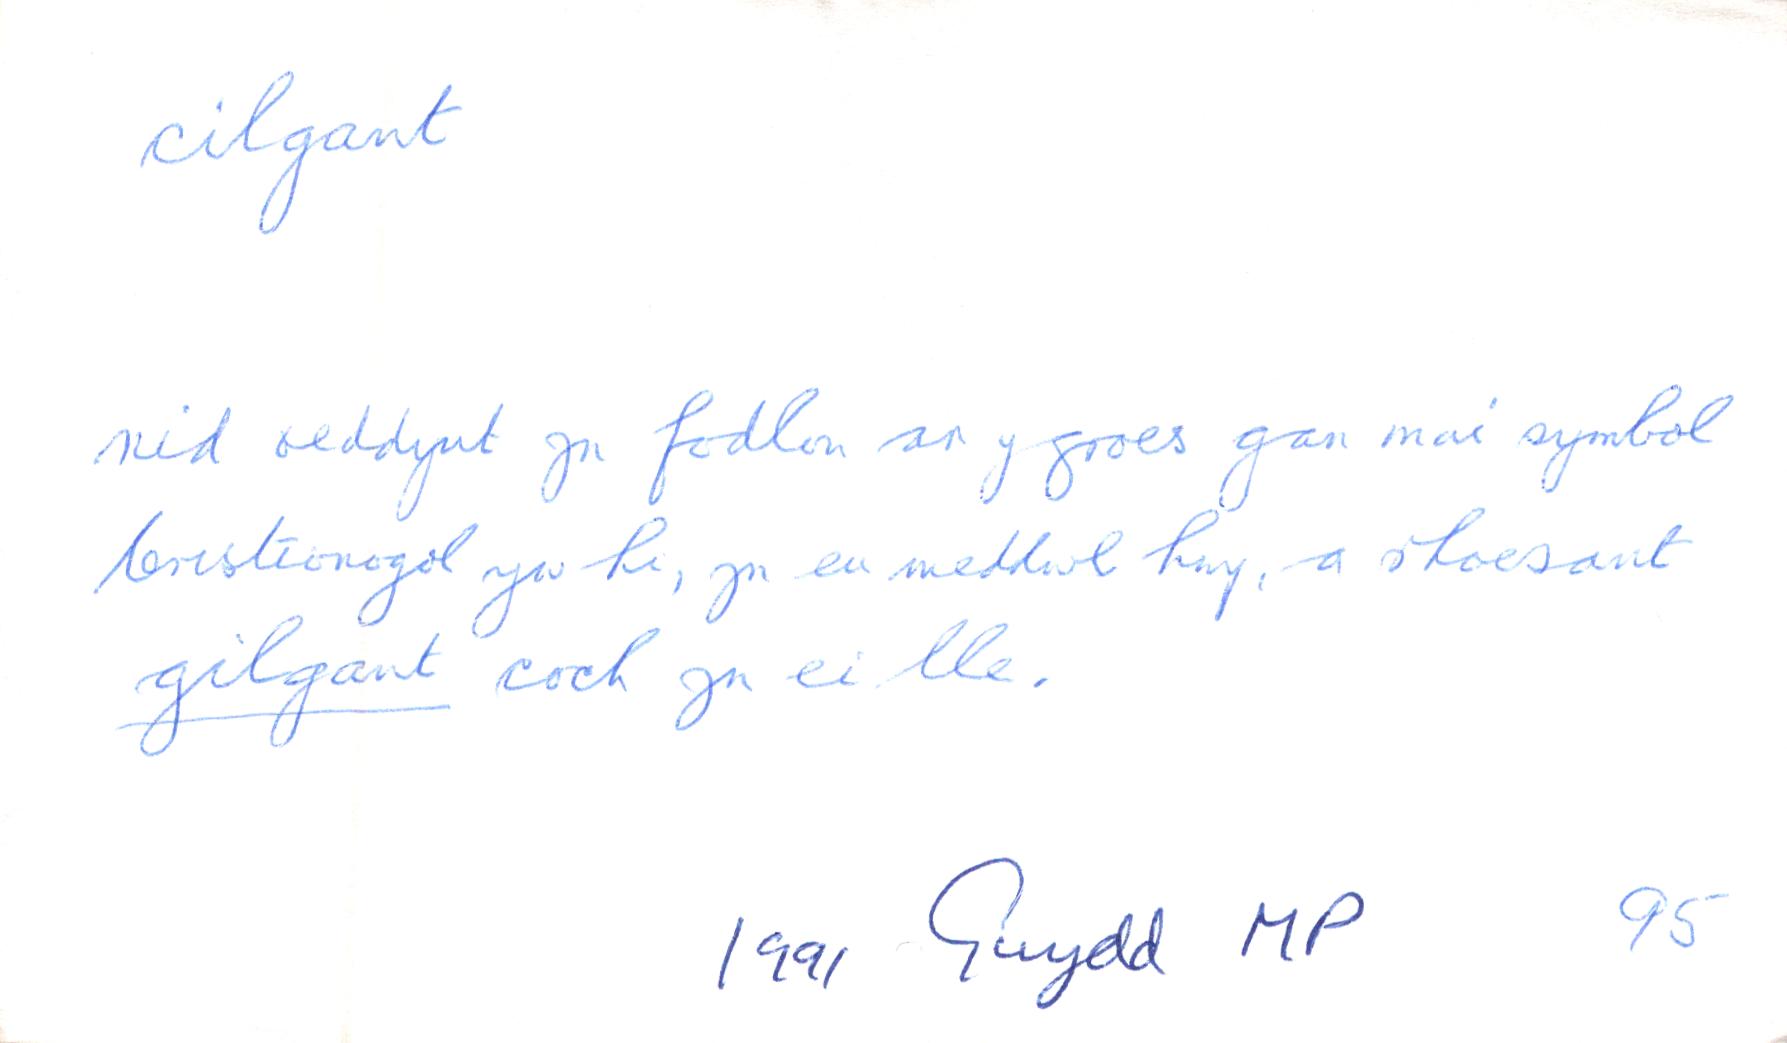 cilgant
nid oeddynt yn fodlon ar y groes gan mai symbol
Cristionogol yw hi, yn eu meddwl hwy, a rhoesant
gilgant coch yn ei lle.
1991 Gwydd MP 95